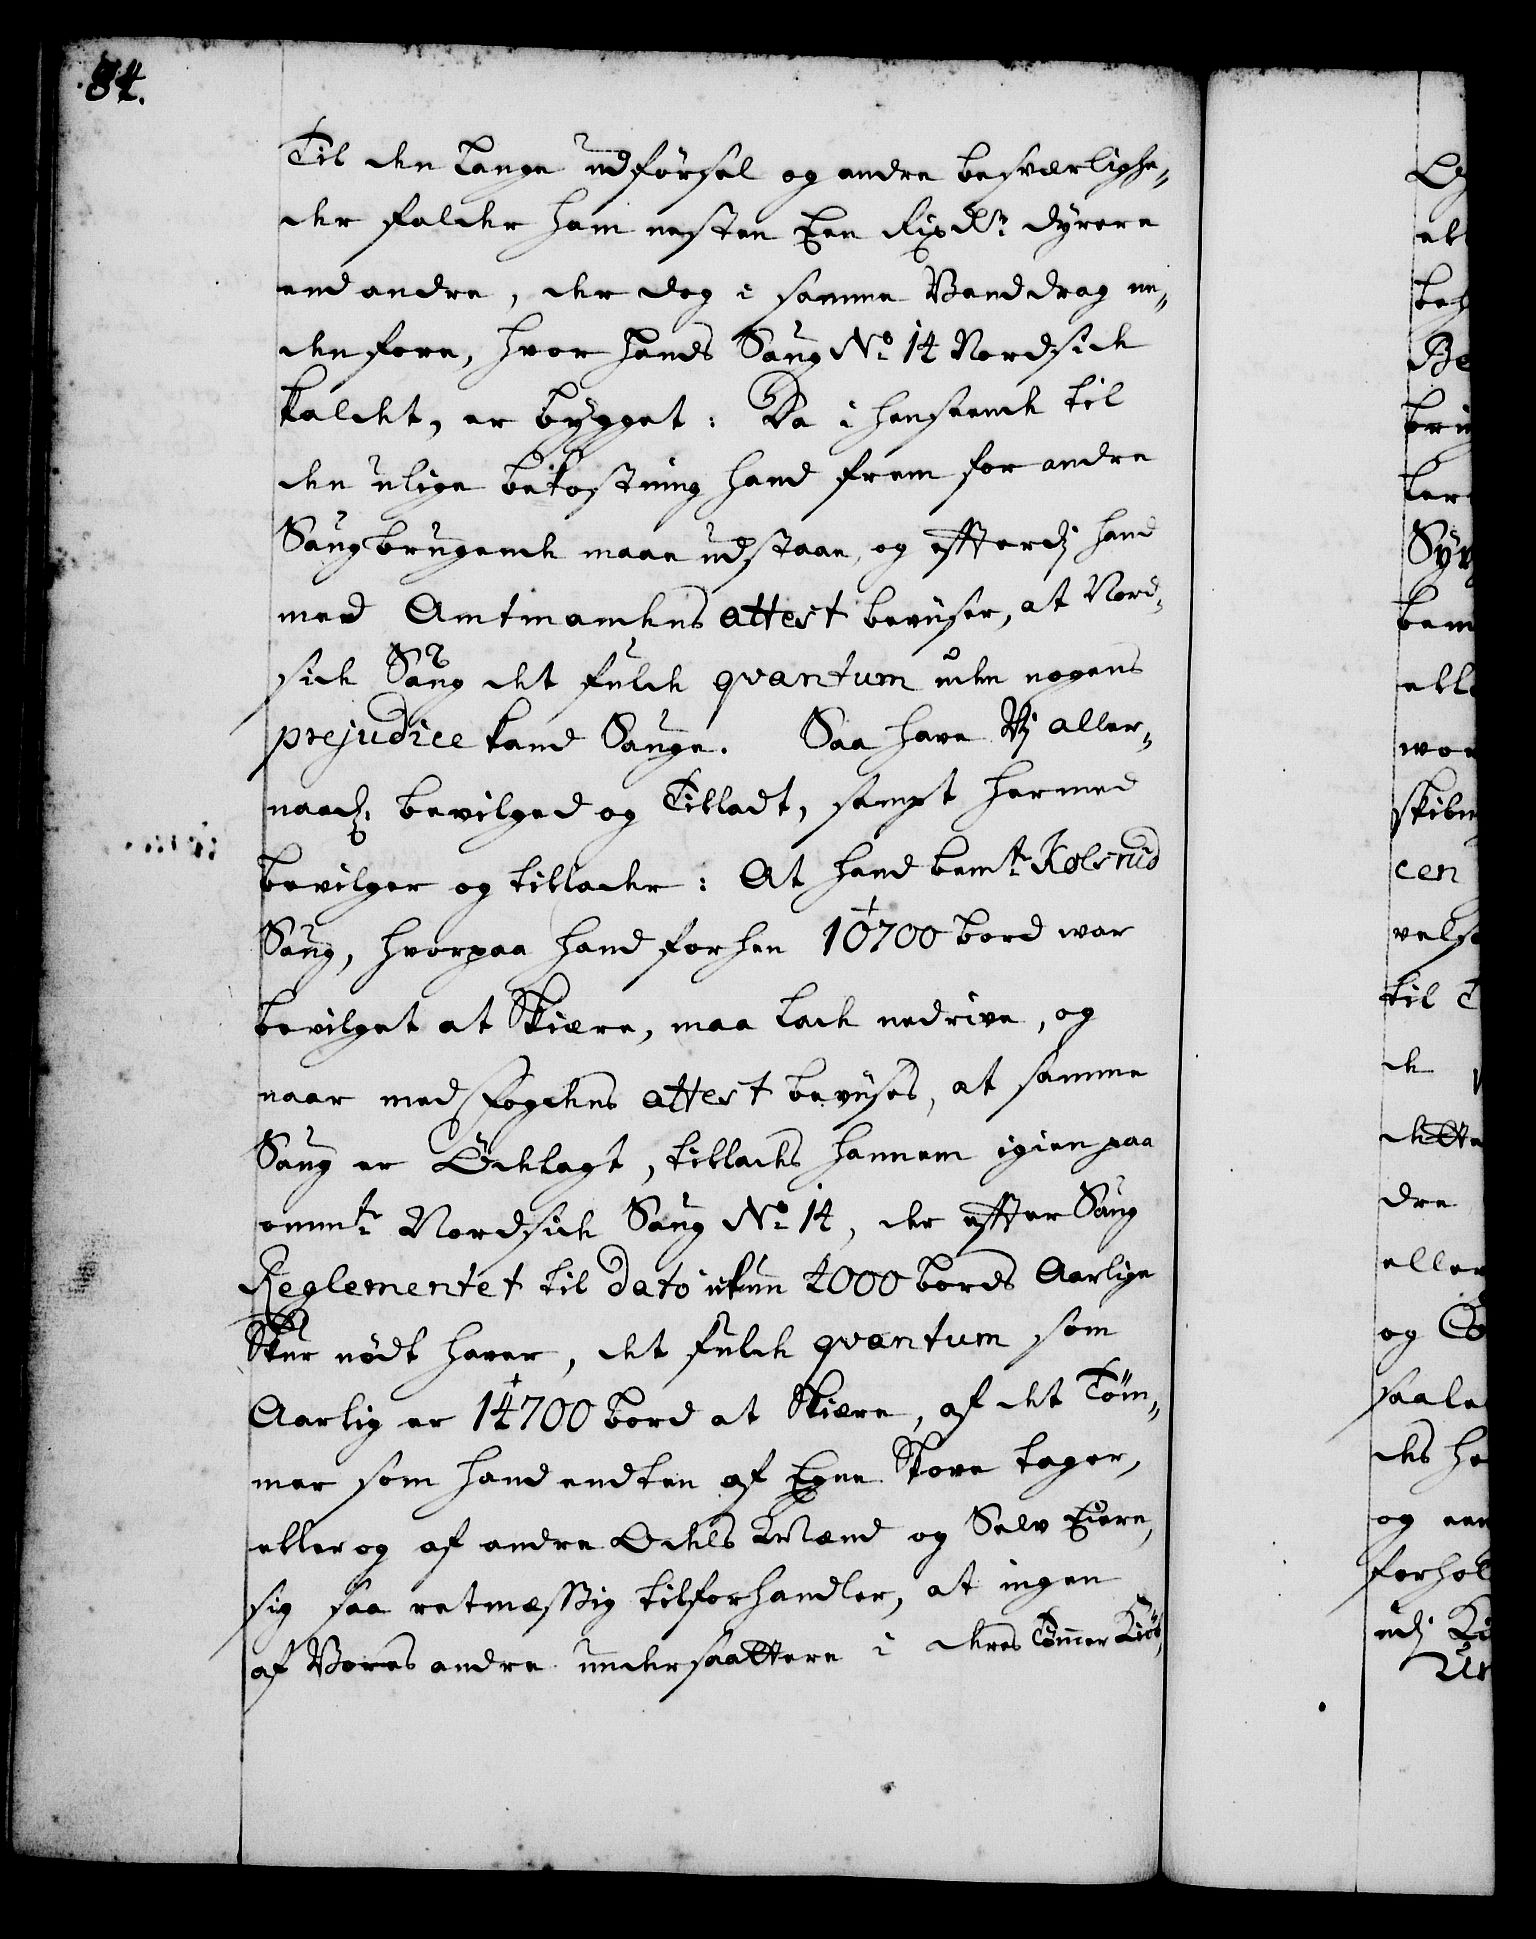 84.
Til den lange udförsel og andre besværlighe„
der falder ham nesten Een Rixdlr. dyrere
end andre, der dog i samme Vanddrag ne„
denfore, hvor hands Saug No. 14 Nordside
kaldet, er bygget: Da i henseende til
den ulige bekostning hand frem for andre
Saugbrugende maae udstaae, og efterdj hand
med Amtmandens attest beviiser, at Nord„
side Saug det fulde qvantum uden nogens
prejudice kand Sauge. Saa have Vj aller„
naadg. bevilged og Tilladt, sampt hermed
bevilger og tillader: At hand bemte. Kølsrud
Saug, hvorpaa hand forhen 10700 bord war
bevilget at Skiære, maa lade nedrive, og
naar med Fogdens attest beviises, at samme
Saug er Ödelagt, tillades hannem igien paa
ommte. Nordside Saug No. 14, der efter Saug
Reglementet til dato ickun 4000 bords Aarlige
Skur nödt haver, det fulde qvantum som
Aarlig er 14700 bord at Skiære, af det Töm„
mer som hand endten af Egne Skove tager,
eller og af andre Odels Mænd og Selv Eiere,
sig saa retmæssig tilforhandler, at ingen
af Vores andre undersaattere i deres Tömmer Kiöb,